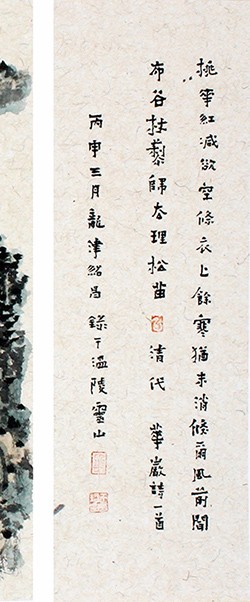 桃華紅減欲空條衣上餘寒猶未消倏爾風前聞
布谷扶藜歸去理松苗 清代 華嵒詩一首
丙申三月龍津紹昌錄于溫陵雪山